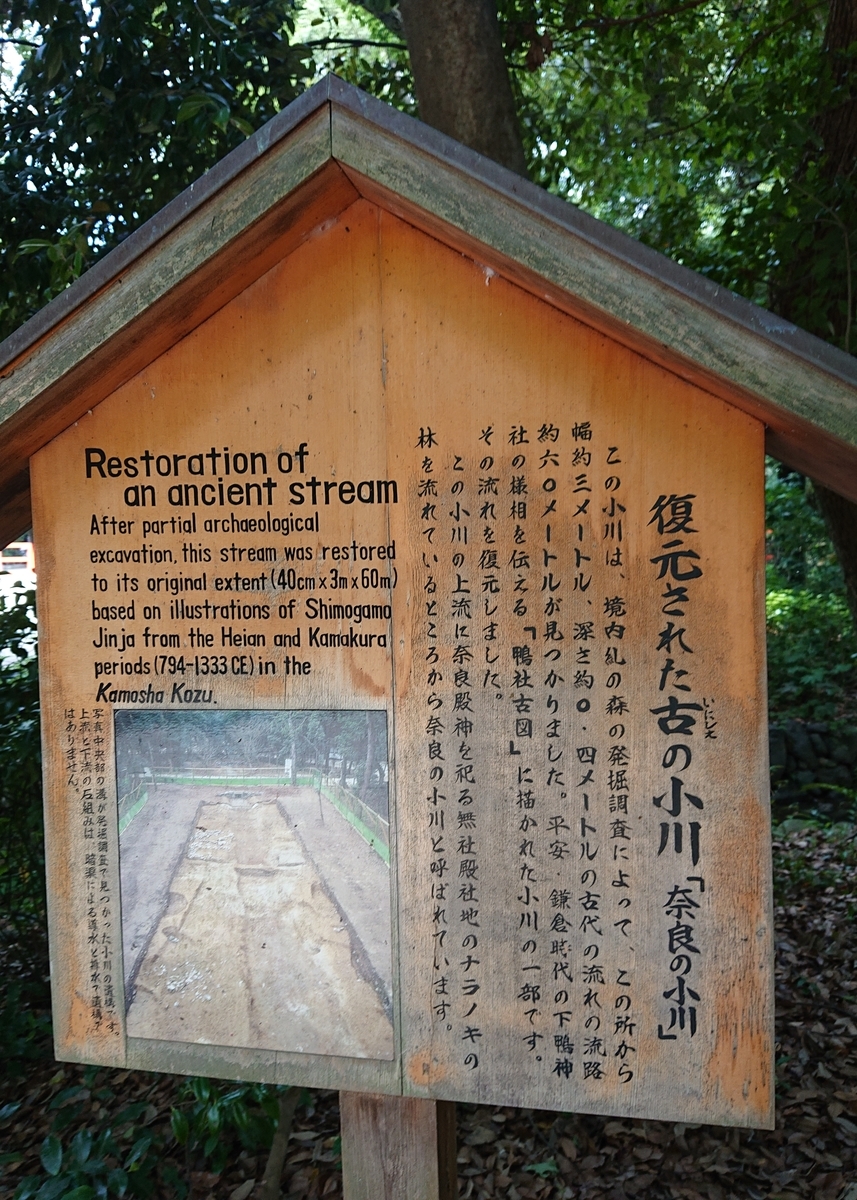 復元された古の小川「奈良の小川」
いにしえ
この小川は、境内糺の森の発掘調査によって、この所から
幅約三メートル、深さ約〇・四メートルの古代の流れの流路
約六〇メートルが見つかりました。平安・鎌倉時代の下鴨神
社の様相を伝える『鴨社古図』に描かれた小川の一部です。
その流れを復元しました。
この小川の上流に奈良殿神を祀る無社殿社地のナラノキの
林を流れているところから奈良の小川と呼ばれています。
Restoration of
an ancient stream
After partial archaeological
excavation, this stream was restored
to its original extent (40cm x 3m x 60m)
based on illustrations of Shimogamo
Jinja from the Heian and Kamakura
periods (794-1333 CE) in the
Kamosha Kozu.
写真中央部の溝が発掘調査で見つかった小川の遺構です。
上流と下流の石組みは、暗渠による導水と排水で遺構で
はありません。